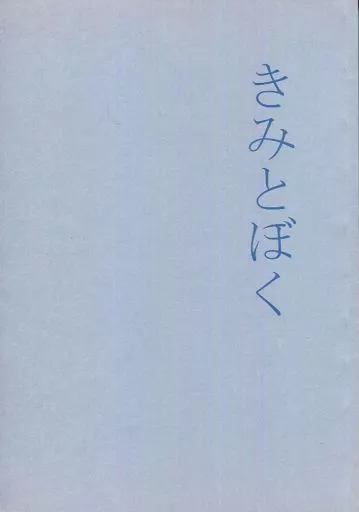 きみとぼく